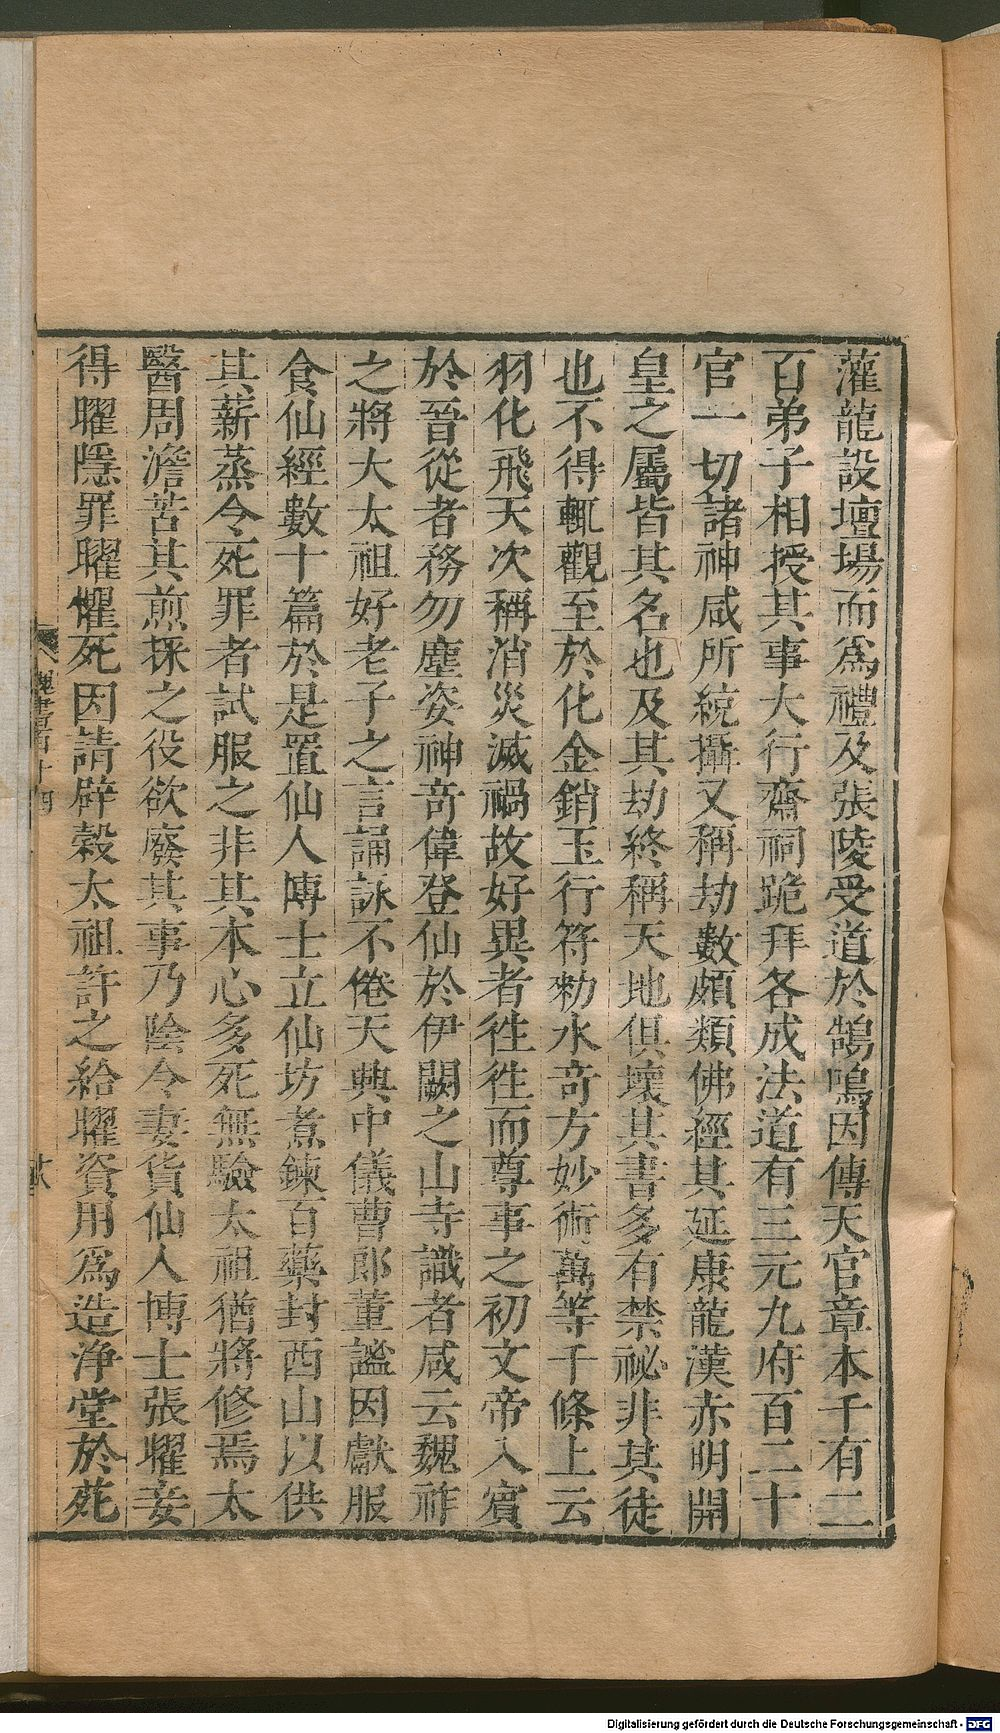 濯龍設壇場而爲禮及張陵受道於鵠鳴因傳天官章本千有二
百弟子相授其事大行齋祠跪拜各成法道有三元九府百二十
官一切諸神咸所統攝又稱劫數頗類佛經其延康龍漢赤明開
皇之屬皆其名也及其劫終稱天地俱壞其書多有禁祕非其徒
也不得輒觀至於化金銷玉行符勑水奇方妙術萬等千條上云
羽化飛天次稱消災滅禍故好異者徃徃而尊事之初文帝入賓
於晉從者務勿塵姿神奇偉登仙於伊闕之山寺識者咸云魏祚
之將大太祖好老子之言誦詠不倦天興中儀曹郎董謐因獻服
食仙經數十篇於是置仙人博士立仙坊煮鍊百藥封西山以供
其薪蒸令死罪者試服之非其本心多死無驗太祖猶將修焉太
醫周澹苦其煎採之役欲廢其事乃陰令妻貨仙人博士張曜妾
得曜隱罪曜懼死因請辟穀太祖許之給曜資用爲造淨堂於苑
魏書百十四
Digitalisierung gefördert durch die Deutsche Forschungsgemeinschaft - DFG